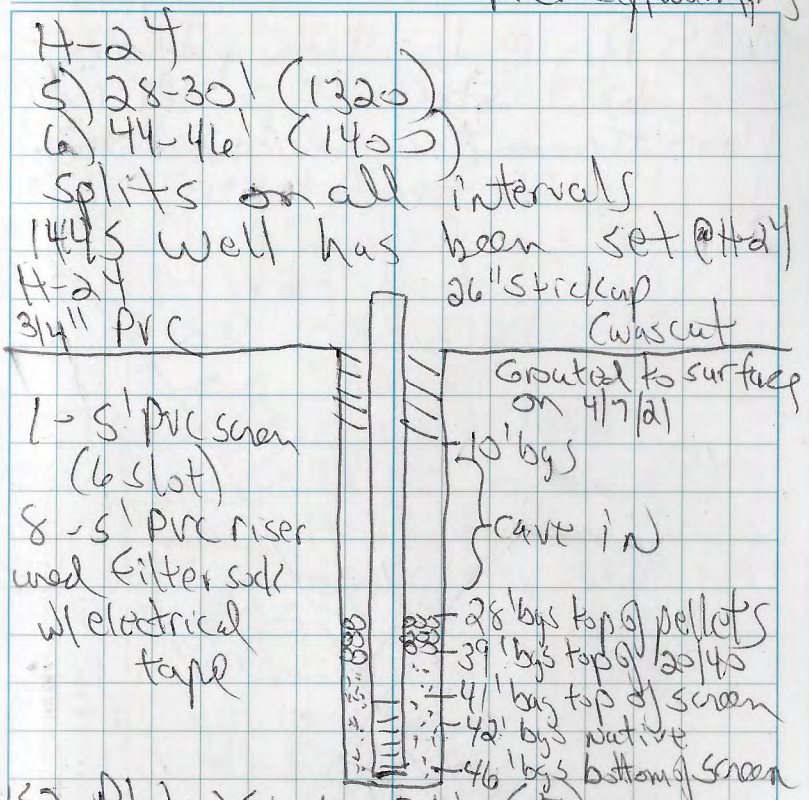 H-24
5) 28-30' (1320)
6) 44-46' (1400)
splits on all intervals
1445 Well has been set @H-24
H-24
3/4" PVC
26" stickup
(was cut
Grouted to surface
on 4/7/21
1-5' PVC screen
(6 slot)
8-5' PVC riser
used filter sock
w/ electrical
tape
-10' bgs
cave in
-28' bgs top of pellets
-39' bgs top of 20/40
-41' bgs top of screen
-42' bgs native
-46' bgs bottom of screen